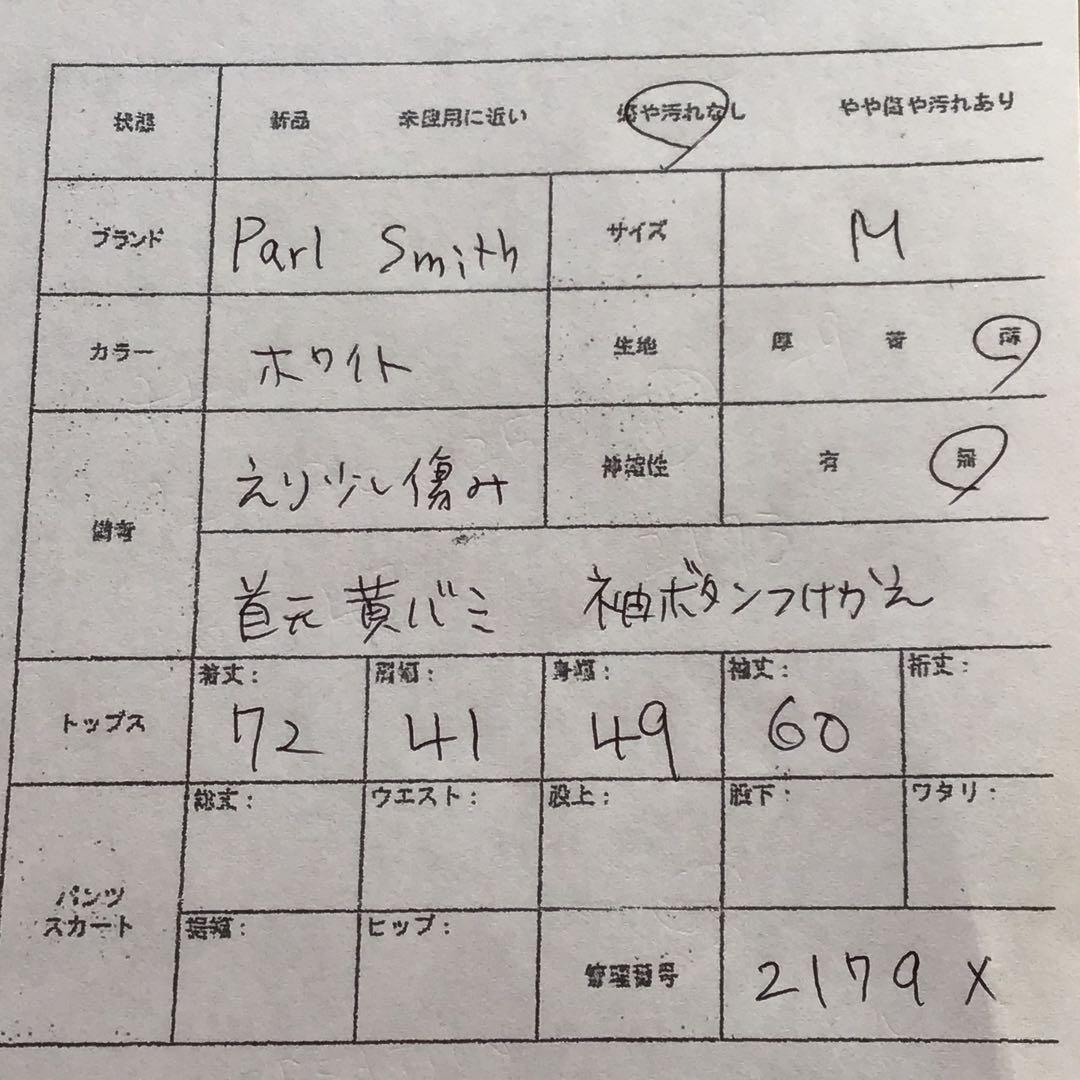 状態 新品 未使用に近い 傷や汚れなし やや傷や汚れあり
ブランド Parl Smith サイズ M
カラー ホワイト 生地 厚 普 薄
備考 えり少し傷み 伸縮性 有 無
首元黄バミ 袖ボタンつけかえ
トップス 着丈: 72 肩幅: 41 身幅: 49 袖丈: 60 裄丈:
パンツ スカート 総丈: ウエスト: 股上: 股下: ワタリ:
裾幅: ヒップ: 管理番号 2179 x